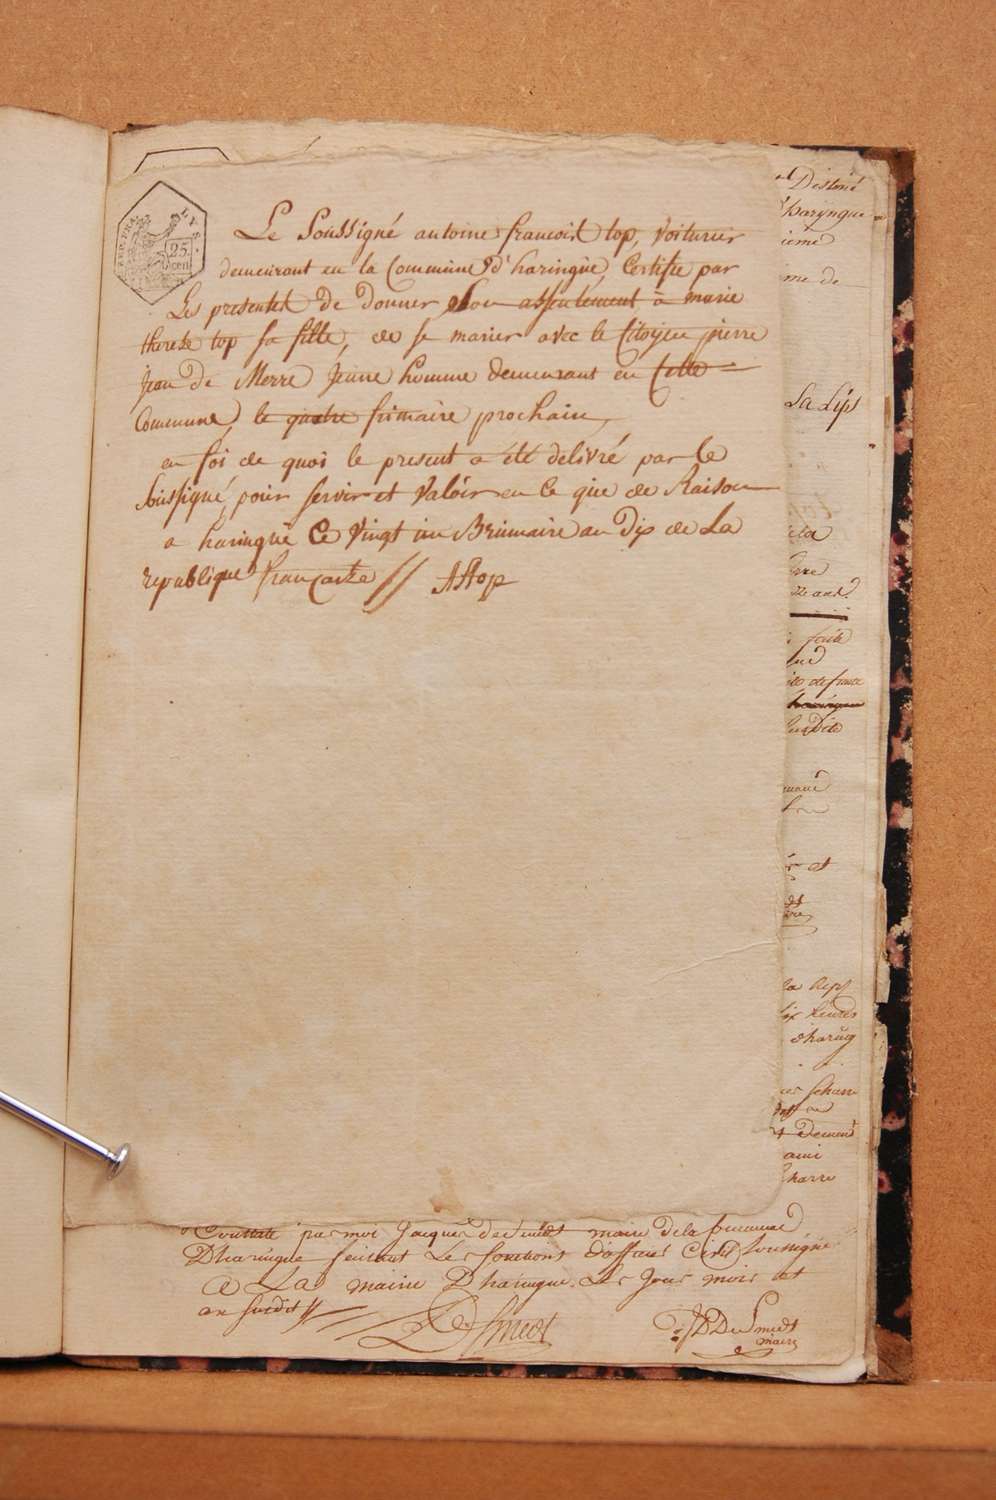 LYS.
25.
cen
Le Soussigné antoine francois top, Voiturier
demeurant en la Commune d'haringue, Certifie par
Les presentes de donner son assentement a marie
therese top sa fille, de se marier avec le Citoyen pierre
Jean De Merre Jeune homme demeurant en Cette
Commune, le quatre frimaire prochain,
en foi de quoi le present a été delivré par le
Soussigné, pour servir et Valoir en Ce que de Raison
a haringue Ce Vingt un Brumaire an Dix de La
republique francaise // AFtop
Destiné
haryngue
ieme
me de
La Lips
de la
faite
de france
Susdite
et
six heures
dharing
Demeu
ami
Constaté par moi Jacques de smedt maire de la Commune
Dharingue faisant Les fonctions d'officié Civil soussigné
a La mairie Dharingue. Les Jour mois et
an susdit //
De Smedt
De Smedt
maire